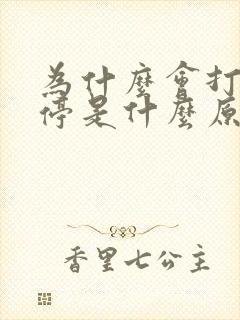 為什麼會打
停是什麼原
香里七公主